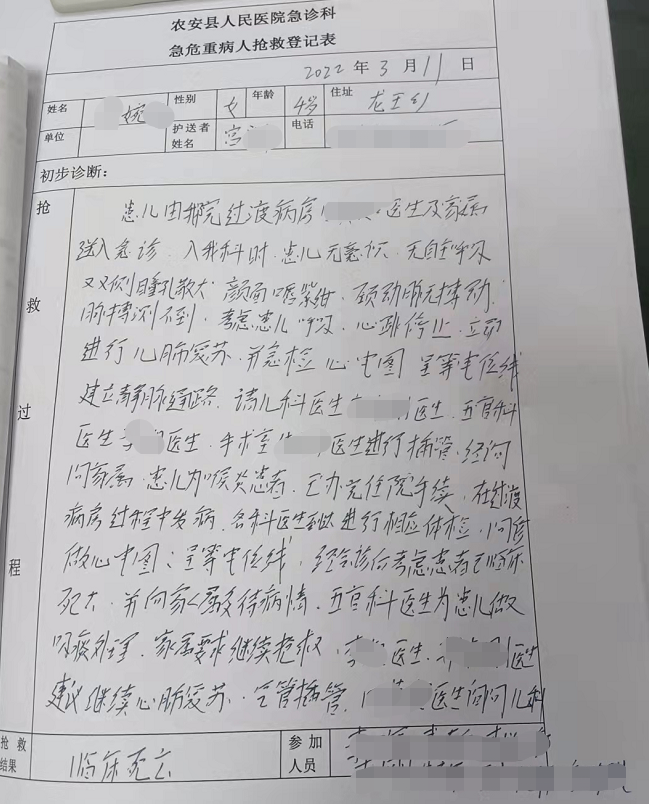 农安县人民医院急诊科
急危重病人抢救登记表
2022 年 3 月 11 日
姓名 婉 性别 女 年龄 4岁 住址 龙王乡
单位 护送者姓名 宫 电话
初步诊断:
抢救过程
患儿由我院过渡病房 医生及家属
送入急诊.入我科时.患儿无意识.无自主呼吸
双侧瞳孔散大 颜面唇紫绀.颈动脉无搏动.
脉搏测不到.考虑患儿呼吸.心跳停止.立即
进行心肺复苏.并急检心电图 呈等电位线
建立静脉通路.请儿科医生 医生.五官科
医生 医生.手术室 医生进行插管.经询
问家属.患儿为喉炎患者.已办完住院手续.在过渡
病房过程中发病.各科医生到此进行相应体检.同时
做心电图:呈等电位线. 后考虑患者已临床
死亡.并向家属交待病情.五官科医生为患儿做
吸痰处理.家属要求继续抢救. 医生. 医生
建议继续心肺复苏.气管插管. 医生询问儿科
抢救结果 临床死亡 参加人员